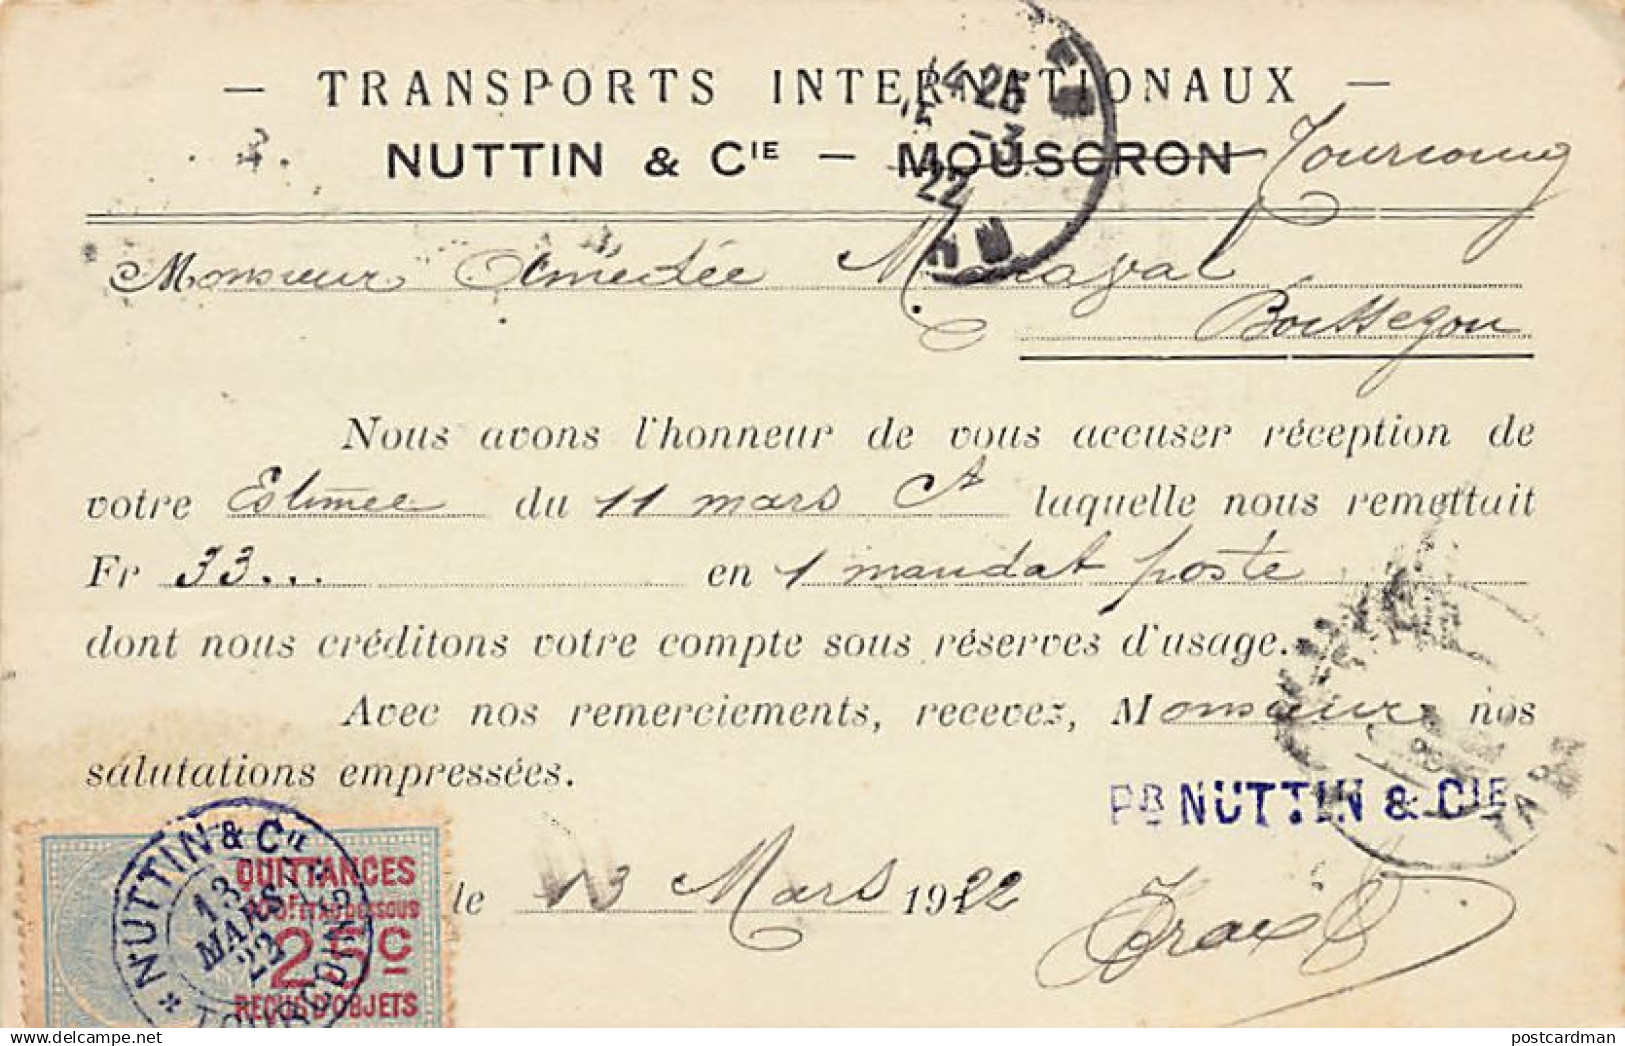 — TRANSPORTS INTERNATIONAUX —
NUTTIN & CIE — MOUSCRON Tourcoing
14 25
15 -3
22
Monsieur Amédée Maraval
Boissezon
Nous avons l'honneur de vous accuser réception de
votre Estimée du 11 mars Ct laquelle nous remettait
Fr 33... en 1 mandat poste
dont nous créditons votre compte sous réserves d'usage.
Avec nos remerciements, recevez, Monsieur nos
salutations empressées.
PR NUTTIN & CIE
TARN
le 13 Mars 1922
QUITTANCES
100F ET AU DESSOUS
25C
REÇUS D'OBJETS
NUTTIN & Cie
13 MARS 22
* TOURCOING
postcardman